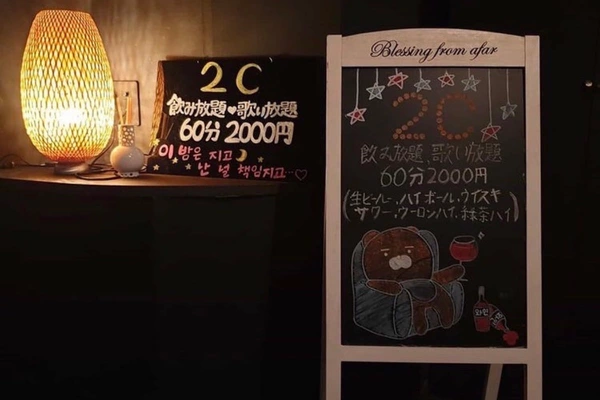 2C
飲み放題♥歌い放題
60分 2000円
이 밤은 지고
난 널 책임지고…♡
Blessing from afar
2C
飲み放題、歌い放題
60分 2000円
(生ビール、ハイボール、ウイスキ
サワー、ウーロンハイ、緑茶ハイ)
와인